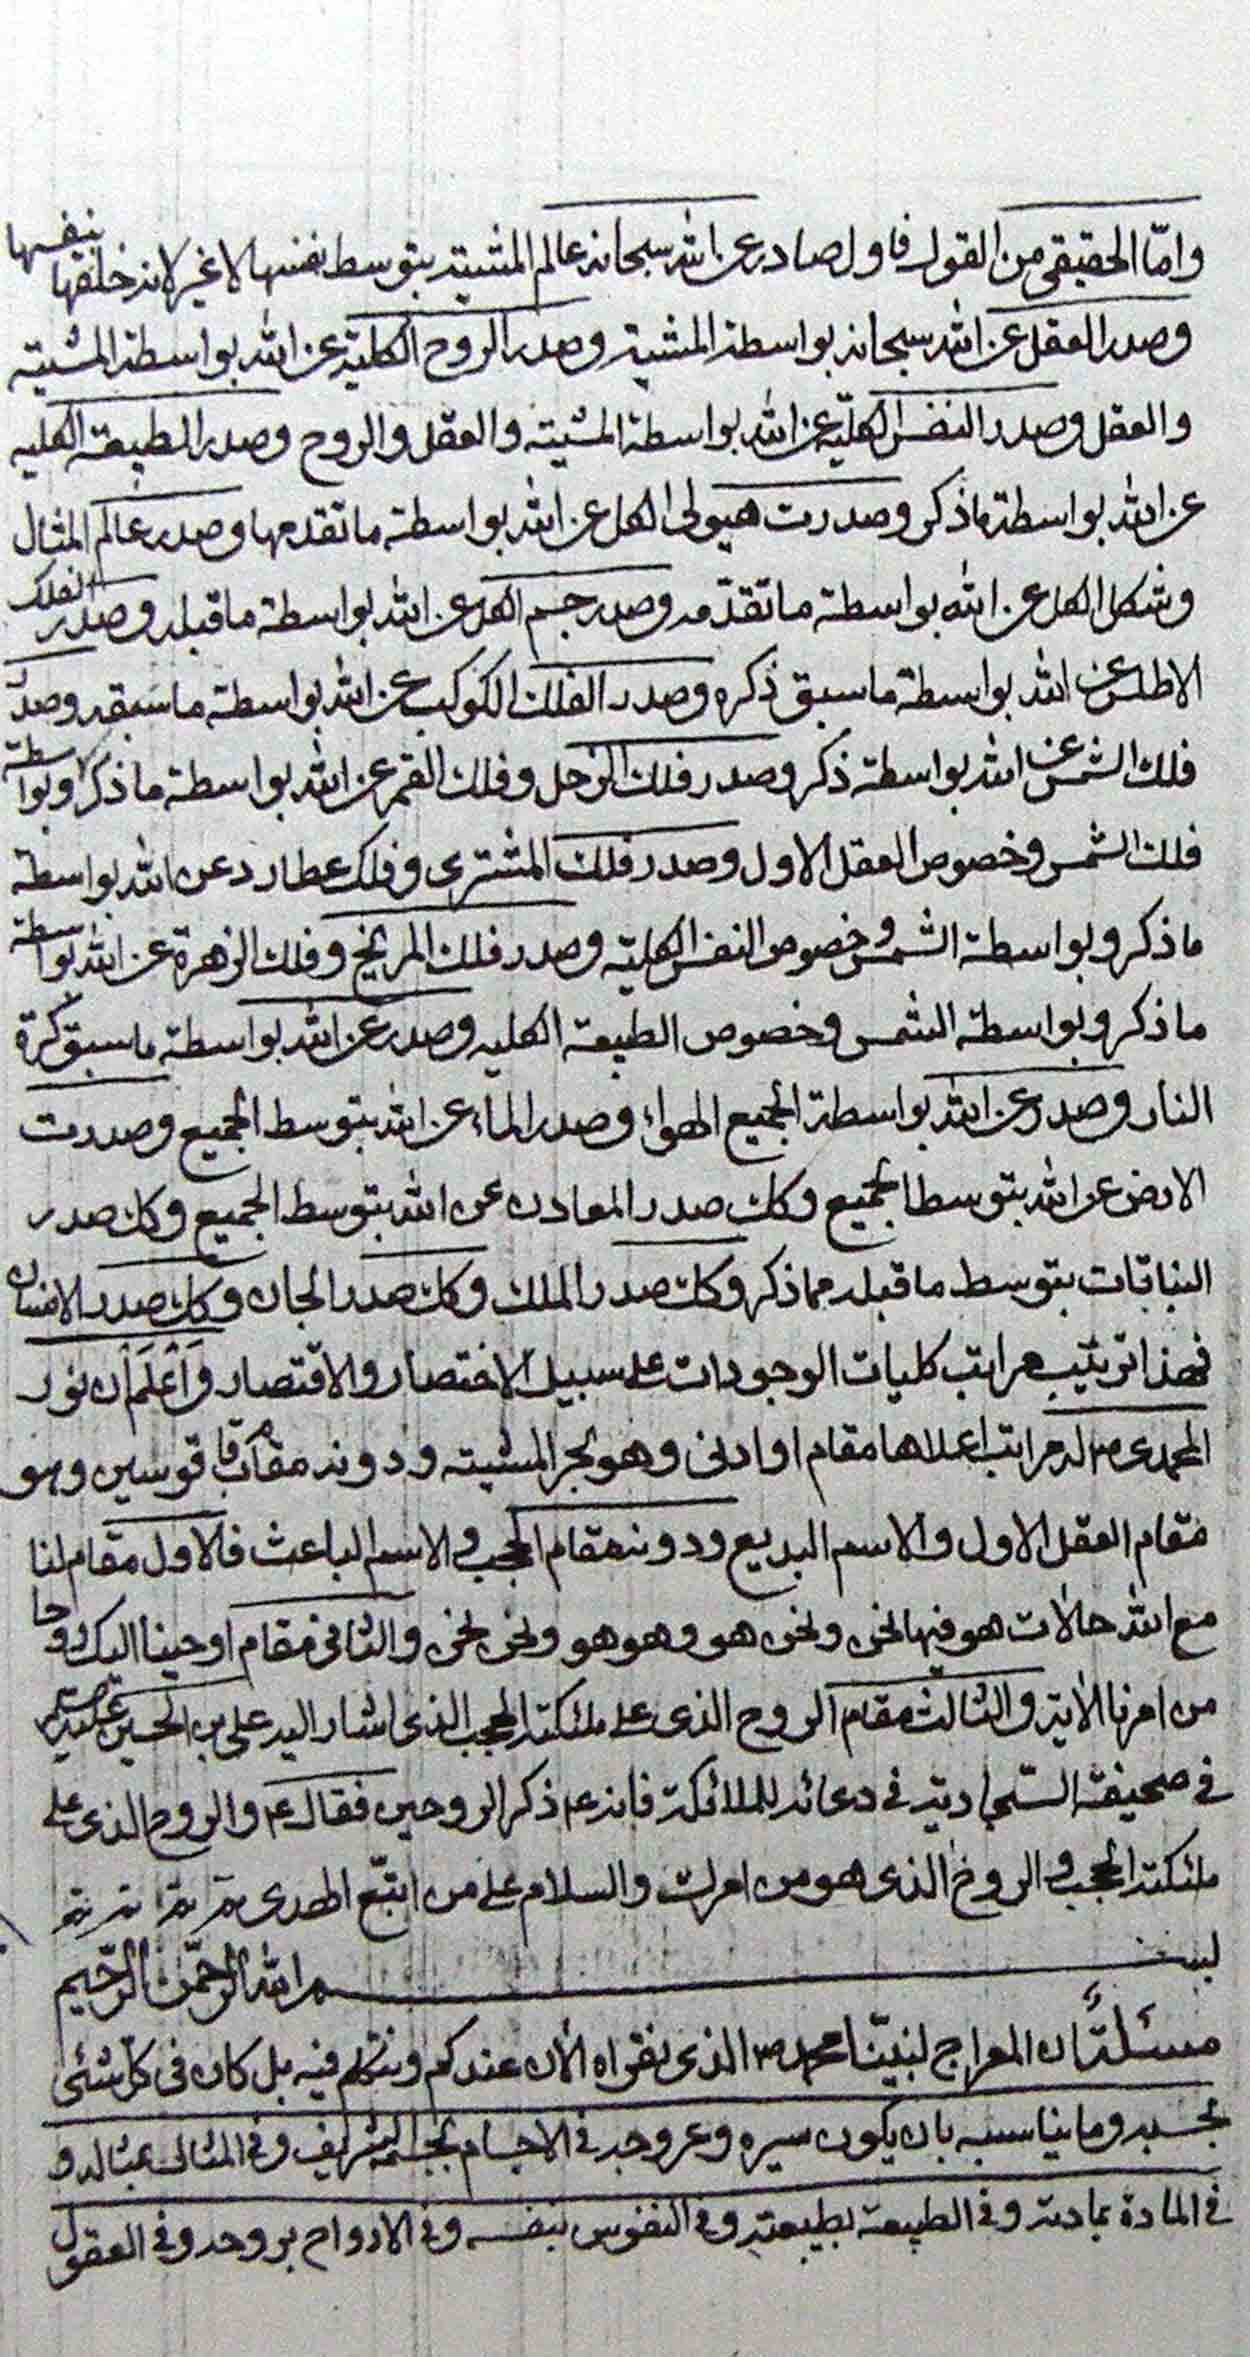 واما الحقيقى من القول فاول صادر عن الله سبحانه عالم المشية بتوسط نفسها لا غير لانه خلقها بنفسها
وصدر العقل عن الله سبحانه بواسطة المشية وصدر الروح الكلية عن الله بواسطة المشية
والعقل وصدر النفس الكلية عن الله بواسطة المشية والعقل والروح وصدر الطبيعة الكلية
عن الله بواسطة ما ذكر وصدرت هيولى الكل عن الله بواسطة ما تقدمها وصدر عالم المثال
وشكل الكل عن الله بواسطة ما تقدمه وصدر جسم الكل عن الله بواسطة ما قبله وصدر الفلك
الاطلس عن الله بواسطة ما سبق ذكره وصدر الفلك الكوكب عن الله بواسطة ما سبقه وصدر
فلك الشمس عن الله بواسطة ذكر وصدر فلك الزحل وفلك القمر عن الله بواسطة ما ذكر وبواسطة
فلك الشمس وخصوص العقل الاول وصدر فلك المشترى وفلك عطارد عن الله بواسطة
ما ذكر وبواسطة الشمس وخصوص النفس الكلية وصدر فلك المريخ وفلك الزهرة عن الله بواسطة
ما ذكر وبواسطة الشمس وخصوص الطبيعة الكليه وصدر عن الله بواسطة ما سبق كرة
النار وصدر عن الله بواسطة الجميع الهواء وصدر الماء عن الله بتوسط الجميع وصدرت
الارض عن الله بتوسط الجميع وكك صدر المعادن عن الله بتوسط الجميع وكك صدر
النباتات بتوسط ما قبله مما ذكر وكك صدر الملك وكك صدر الجان وكك صدر الانسان
فهذا ترتيب مراتب كليات الوجودات على سبيل الاختصار والاقتصار وَاَعْلَم ان نور
المحمدى ص له مراتب اعلاها مقام او ادنى وهو بحر المشية ودونه مقام قاب قوسين وهو
مقام العقل الاول والاسم البديع ودونه مقام الحجب والاسم الباعث فالاول مقام لنا
مع الله حالات هو فيها نحن ونحن هو وهو هو ونحن نحن والثانى مقام اوحينا اليك روحا
من امرنا الاية والثالث مقام الروح الذى على ملئكة الحجب الذى اشار اليه على بن الحسين عليه
فى صحيفة السجادية فى دعائه للملائكة فانه ع ذكر الروحين فقال ع والروح الذى على
ملئكة الحجب والروح الذى هو من امرك والسلام على من اتبع الهدى تمت تمت تمت تمت
بسم الله الرحمن الرحيم
مسئلة ان المعراج لنبينا محمد ص الذى نقراه الان عندكم ونتكلم فيه بل كان فى كل شئى
بحسبه وما يناسبه بان يكون سيره وعروجه فى الاجسام بجسمه الشريف وفى المثال بمثاله و
فى المادة بمادته وفى الطبيعة بطبيعته وفى النفوس بنفسه وفى الارواح بروحه وفى العقول